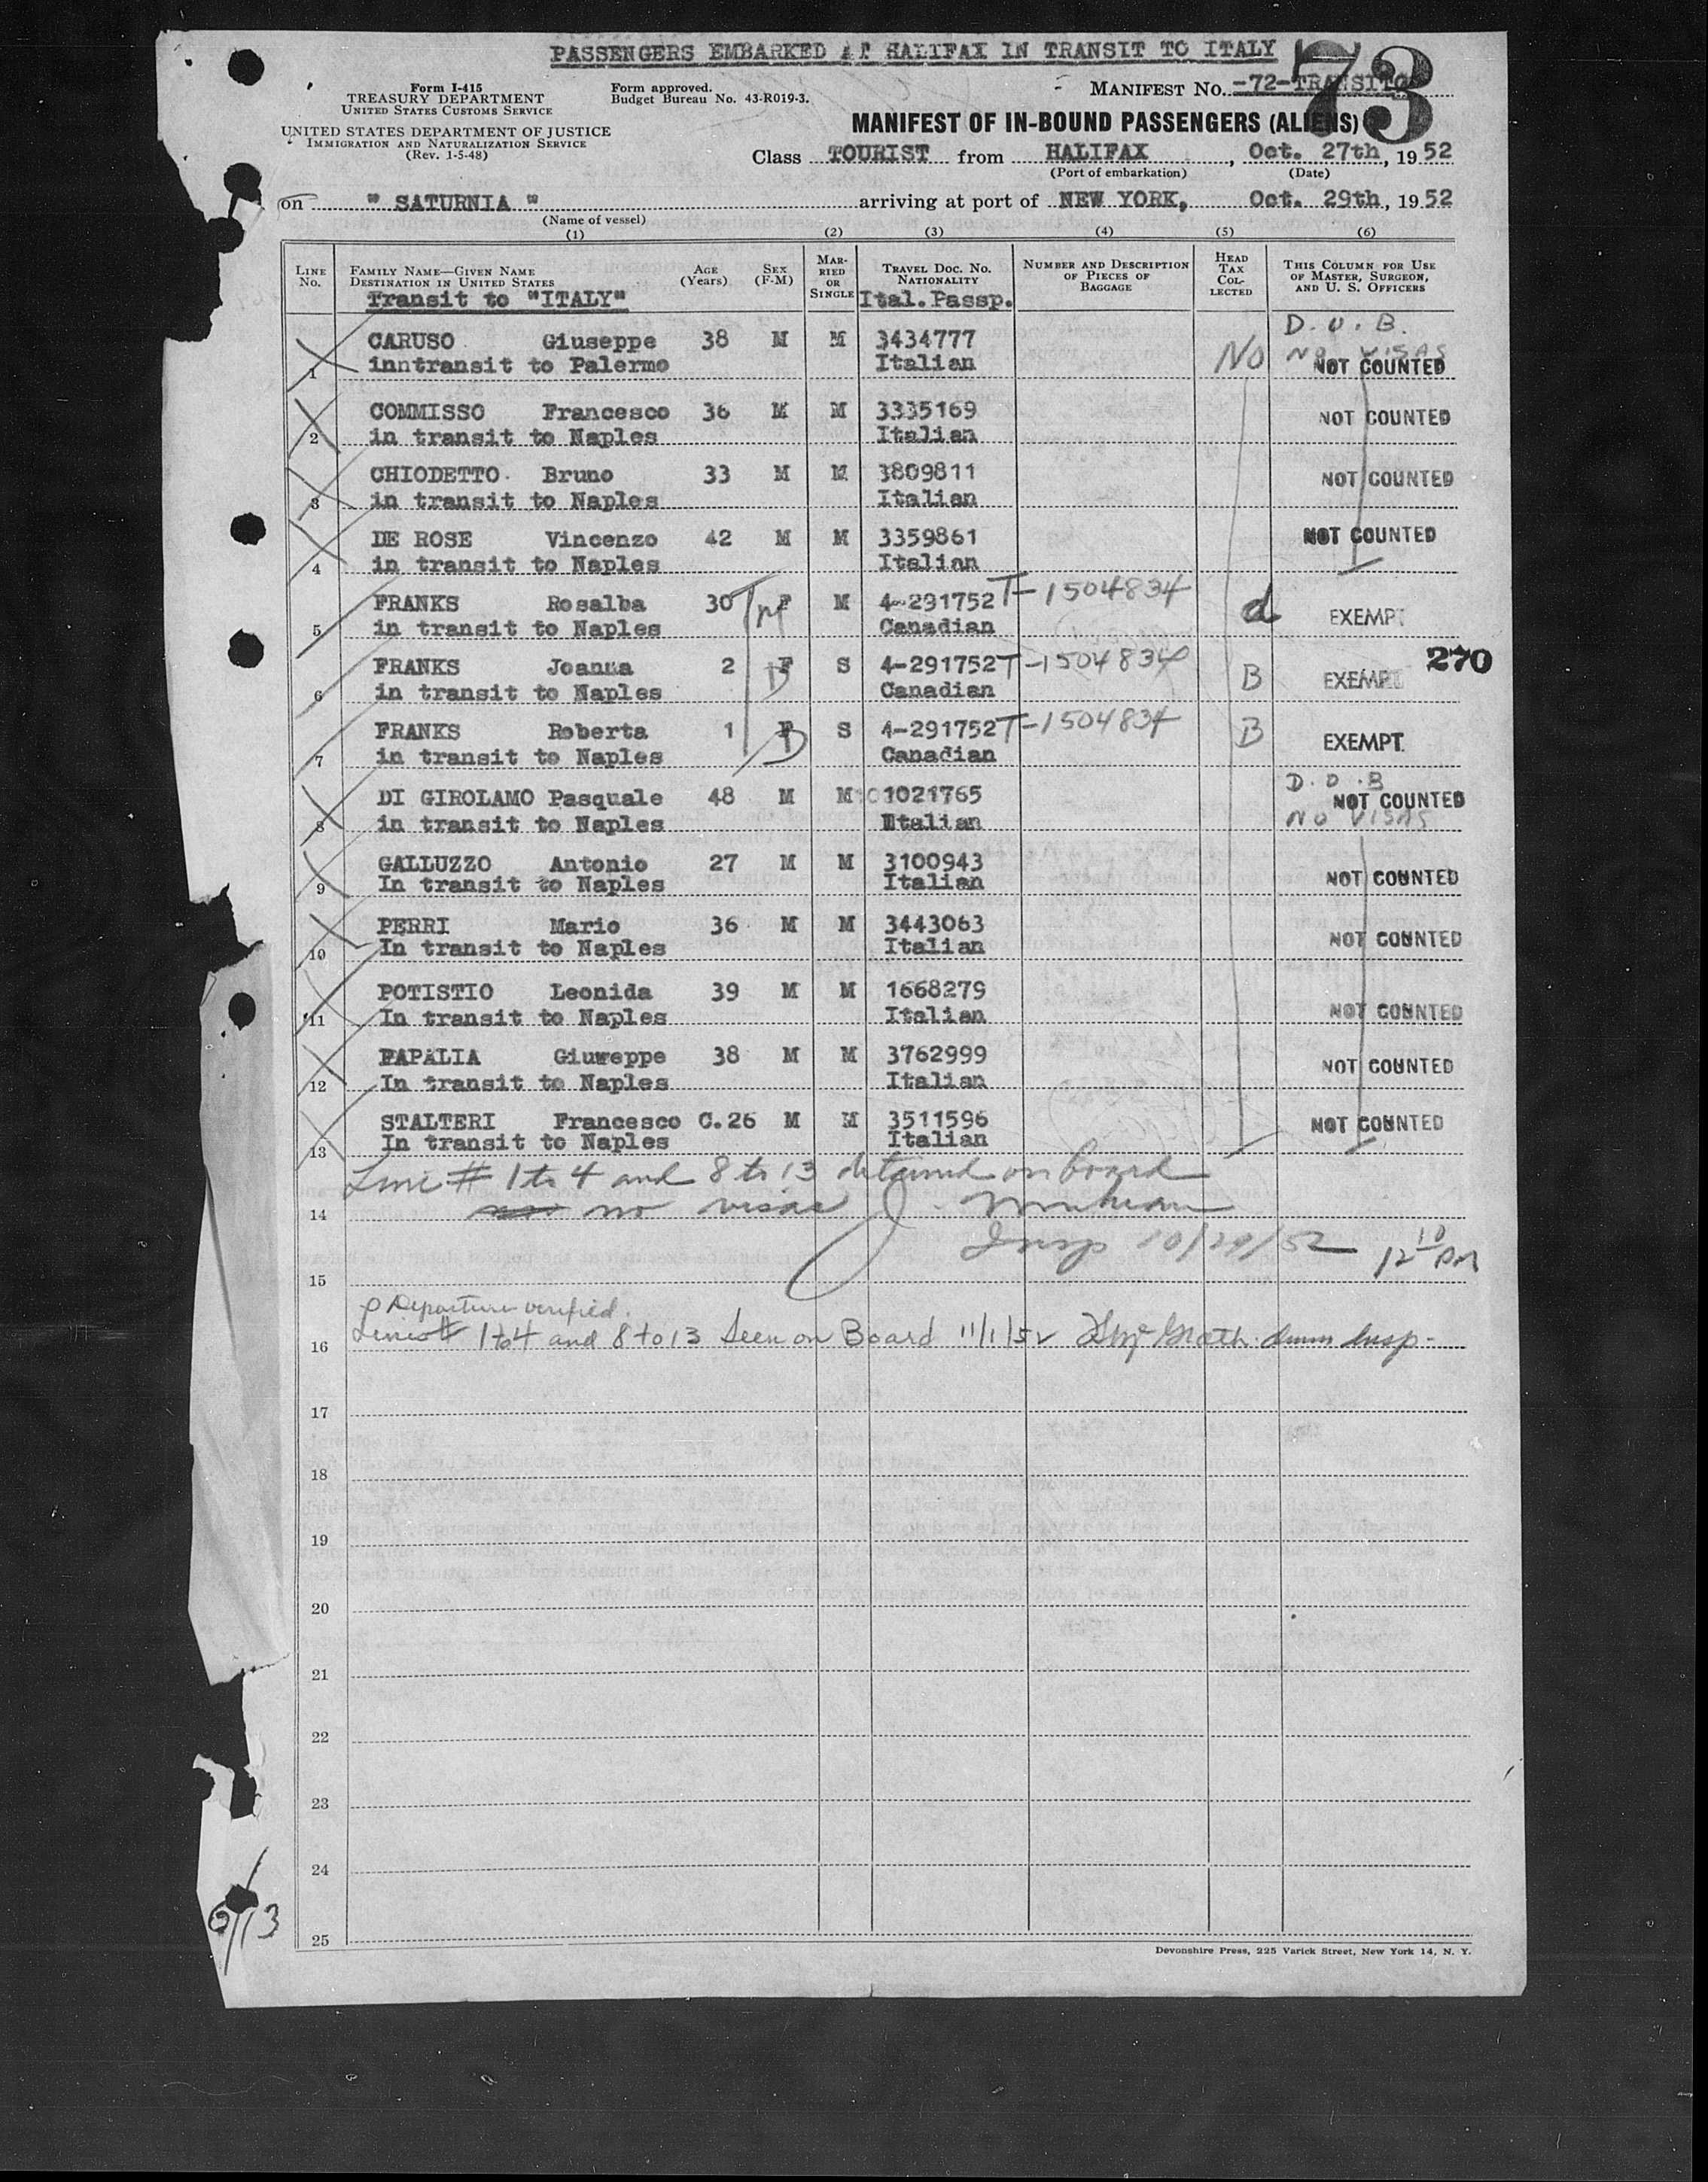 PASSENGERS EMBARKED AT HALIFAX IN TRANSIT TO ITALY
73
Form I-415
TREASURY DEPARTMENT
UNITED STATES CUSTOMS SERVICE
UNITED STATES DEPARTMENT OF JUSTICE
IMMIGRATION AND NATURALIZATION SERVICE
(Rev. 1-5-48)
Form approved.
Budget Bureau No. 43-R019-3.
MANIFEST No. -72-TRANSITO
MANIFEST OF IN-BOUND PASSENGERS (ALIENS)
Class TOURIST from HALIFAX, Oct. 27th, 1952
(Port of embarkation) (Date)
on " SATURNIA " arriving at port of NEW YORK, Oct. 29th, 1952
(Name of vessel)
(1) (2) (3) (4) (5) (6)
LINE No. FAMILY NAME—GIVEN NAME DESTINATION IN UNITED STATES AGE (Years) SEX (F-M) MARRIED OR SINGLE TRAVEL DOC. No. NATIONALITY NUMBER AND DESCRIPTION OF PIECES OF BAGGAGE HEAD TAX COLLECTED THIS COLUMN FOR USE OF MASTER, SURGEON, AND U. S. OFFICERS
Transit to "ITALY" Ital.Passp.
D.O.B.
CARUSO Giuseppe 38 M M 3434777 No NO VISAS
1 inntransit to Palermo Italian NOT COUNTED
COMMISSO Francesco 36 M M 3335169 NOT COUNTED
2 in transit to Naples Italian
CHIODETTO Bruno 33 M M 3809811 NOT COUNTED
3 in transit to Naples Italian
DE ROSE Vincenzo 42 M M 3359861 NOT COUNTED
4 in transit to Naples Italian
FRANKS Rosalba 30 F M M 4-291752 T-1504834 d EXEMPT
5 in transit to Naples Canadian
FRANKS Joanna 2 F D S 4-291752 T-1504834 B EXEMPT 270
6 in transit to Naples Canadian
FRANKS Roberta 1 F D S 4-291752 T-1504834 B EXEMPT
7 in transit to Naples Canadian
D.O.B
DI GIROLAMO Pasquale 48 M M 1021765 NOT COUNTED
8 in transit to Naples Italian NO VISAS
GALLUZZO Antonio 27 M M 3100943
9 In transit to Naples Italian NOT COUNTED
PERRI Mario 36 M M 3443063 NOT COUNTED
10 In transit to Naples Italian
POTISTIO Leonida 39 M M 1668279 NOT COUNTED
11 In transit to Naples Italian
PAPALIA Giuweppe 38 M M 3762999 NOT COUNTED
12 In transit to Naples Italian
STALTERI Francesco C.26 M M 3511596 NOT COUNTED
13 In transit to Naples Italian
Line # 1 to 4 and 8 to 13 detained on board
14 no visas J.
15 Insp 10/29/52 12 10 PM
Departure verified.
16 Lines # 1 to 4 and 8 to 13 Seen on Board 11/1/52 McGrath Imm Insp.
17
18
19
20
21
22
23
24
25
Devonshire Press, 225 Varick Street, New York 14, N. Y.